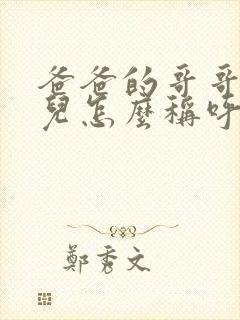 爸爸的哥哥
兒怎麼稱呼
鄭秀文